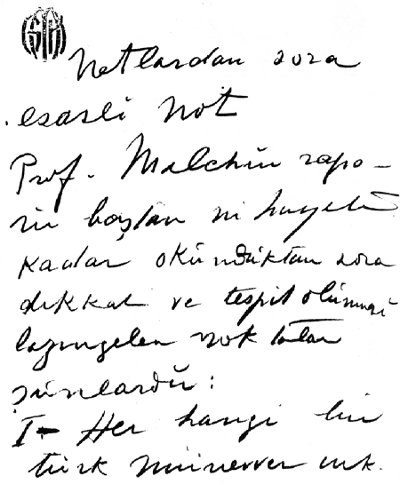 Notlardan sora
esaslı not
Prof. Malchın rapo-
ru baştan nihayete
kadar okunduktan sora
dıkkat ve tespit olunması
lazımgelen noktalar
şunlardır:
I- Her hangi bir
türk münevver